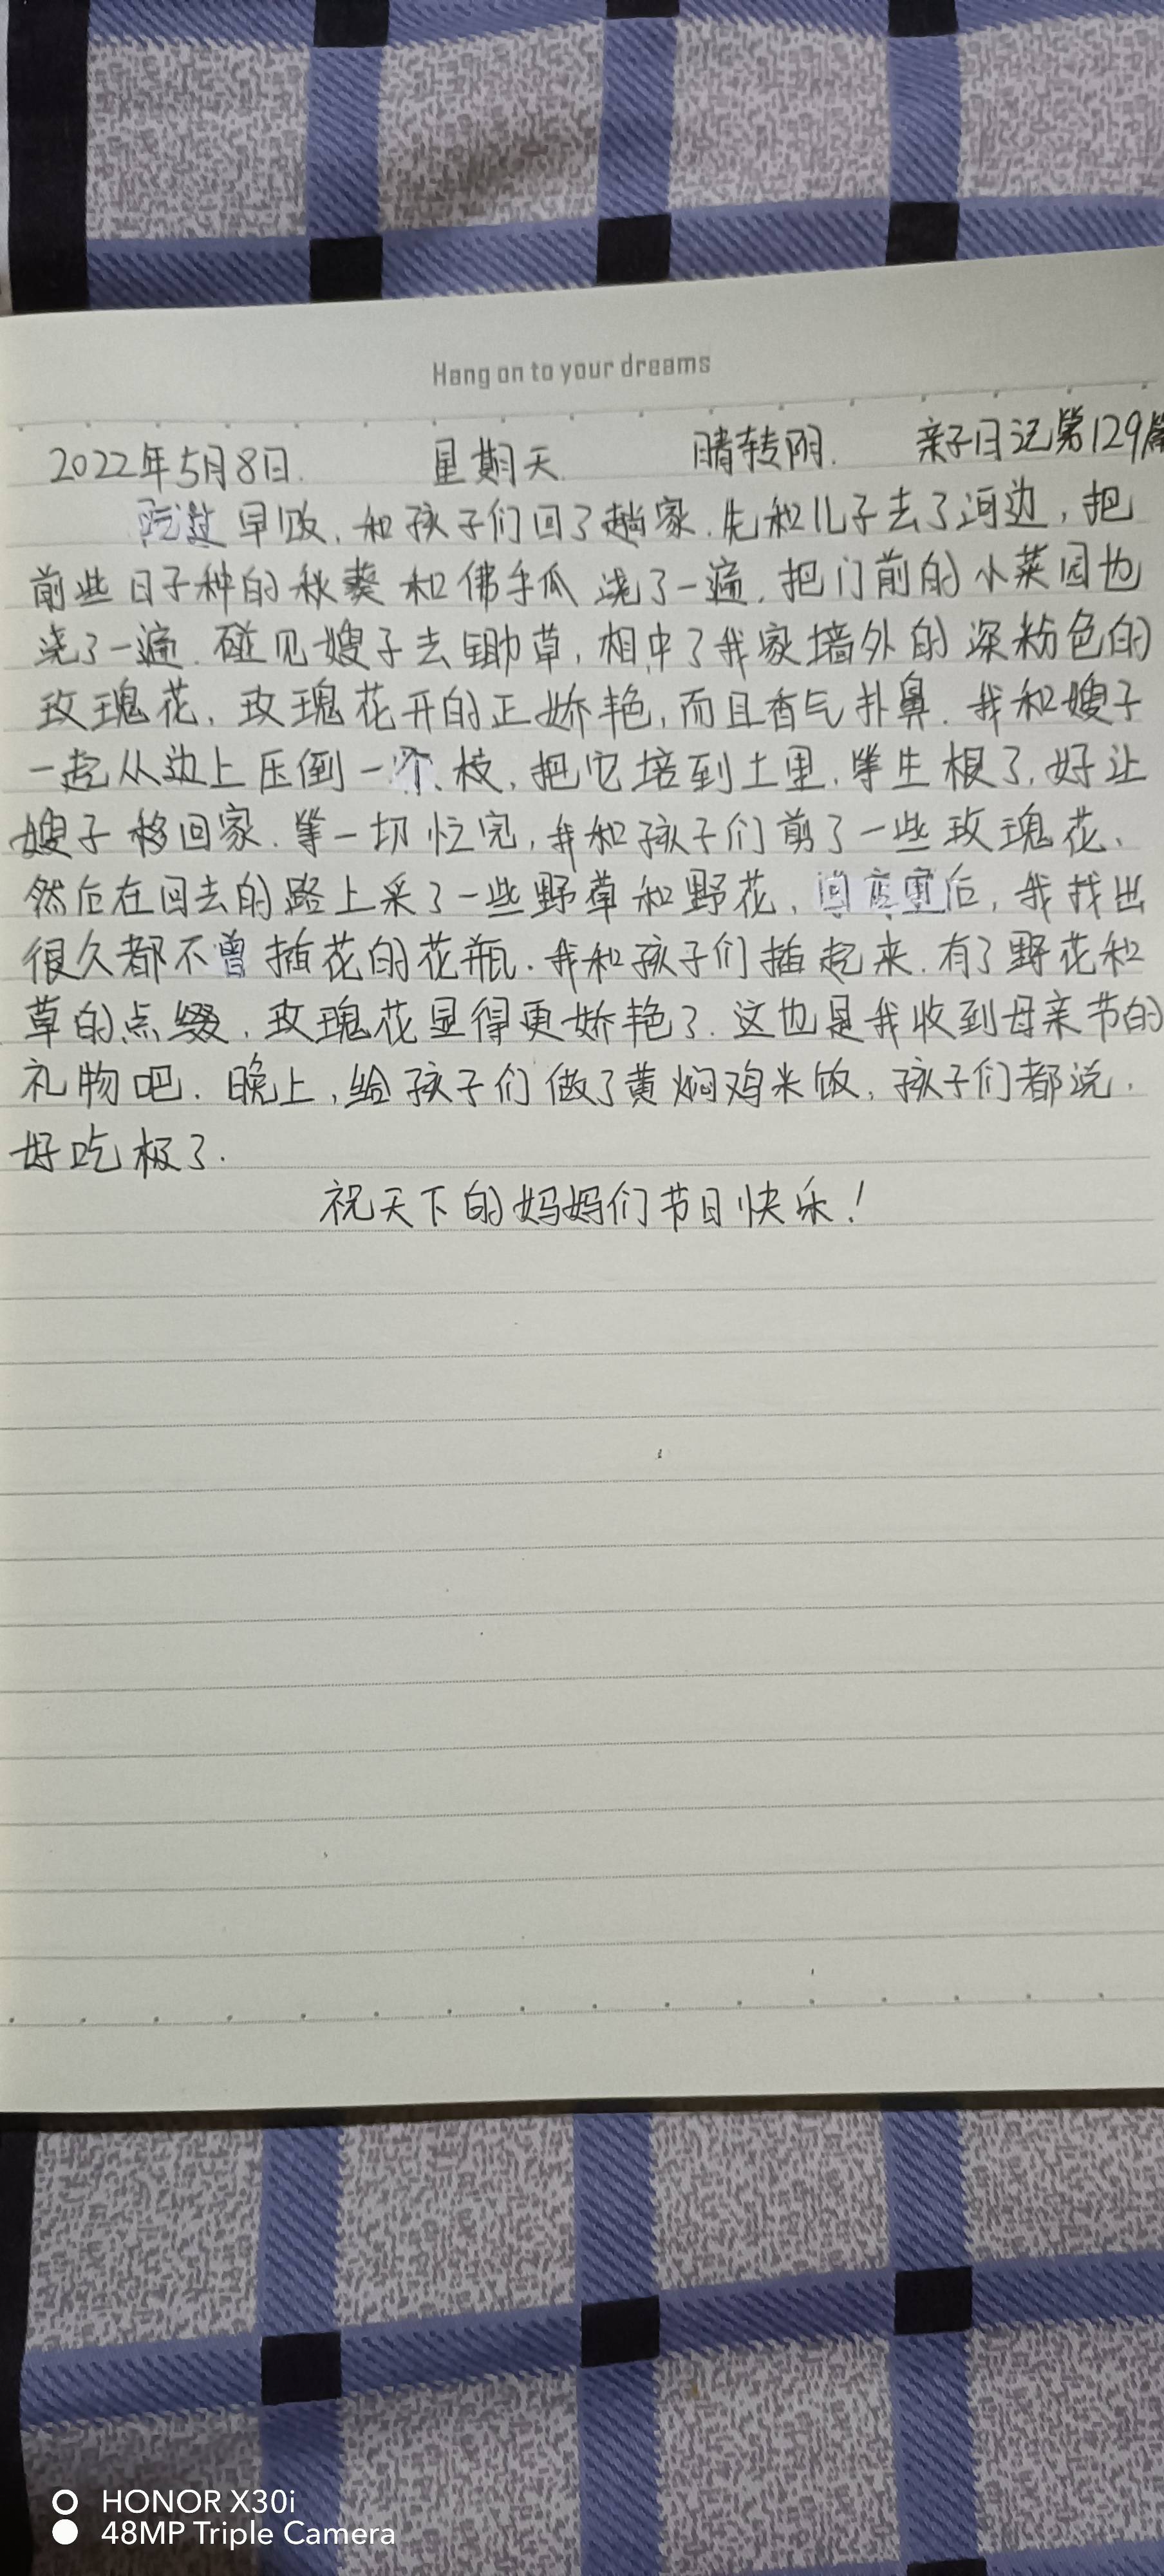 Hang on to your dreams
2022年5月8日. 星期天. 晴转阴. 亲子日记第129篇
吃过早饭,和孩子们回了趟家.先和儿子去了河边,把
前些日子种的秋葵和佛手瓜浇了一遍.把门前的小菜园也
浇了一遍.碰见嫂子去锄草,相中了我家墙外的深粉色的
玫瑰花,玫瑰花开的正娇艳,而且香气扑鼻.我和嫂子
一起从边上压倒一个枝,把它培到土里,等生根了,好让
嫂子移回家.等一切忙完,我和孩子们剪了一些玫瑰花、
然后在回去的路上采了一些野草和野花,回后,我找出
很久都不曾插花的花瓶.我和孩子们插起来.有了野花和
草的点缀,玫瑰花显得更娇艳了.这也是我收到母亲节的
礼物吧.晚上,给孩子们做了黄焖鸡米饭,孩子们都说,
好吃极了.
祝天下的妈妈们节日快乐!
HONOR X30i
48MP Triple Camera